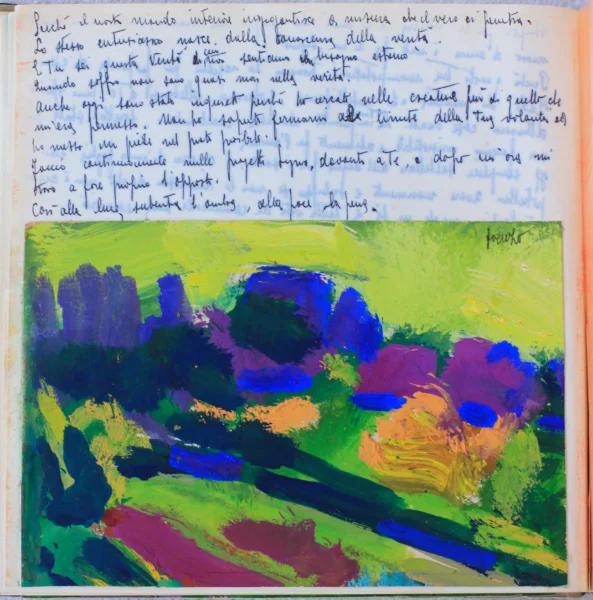 Perché il nostro mondo interiore ingigantisce a misura che il vero ci penetra.
Lo stesso entusiasmo nasce dalla conoscenza della verità.
E Tu sei questa Verità di cui sentiamo bisogno estremo
Quando soffro non sono quasi mai nella verità.
Anche oggi sono stato inquieto perché ho cercato nelle creature più di quello che
mi era permesso. Non ho saputo fermarmi al limite della Tua volontà ed
ho messo un piede nel prato proibito.
Faccio continuamente mille progetti, davanti a Te e dopo un'ora mi
trovo a fare proprio l'opposto.
Così alla luce subentra l'ombra, alla pace la pena.